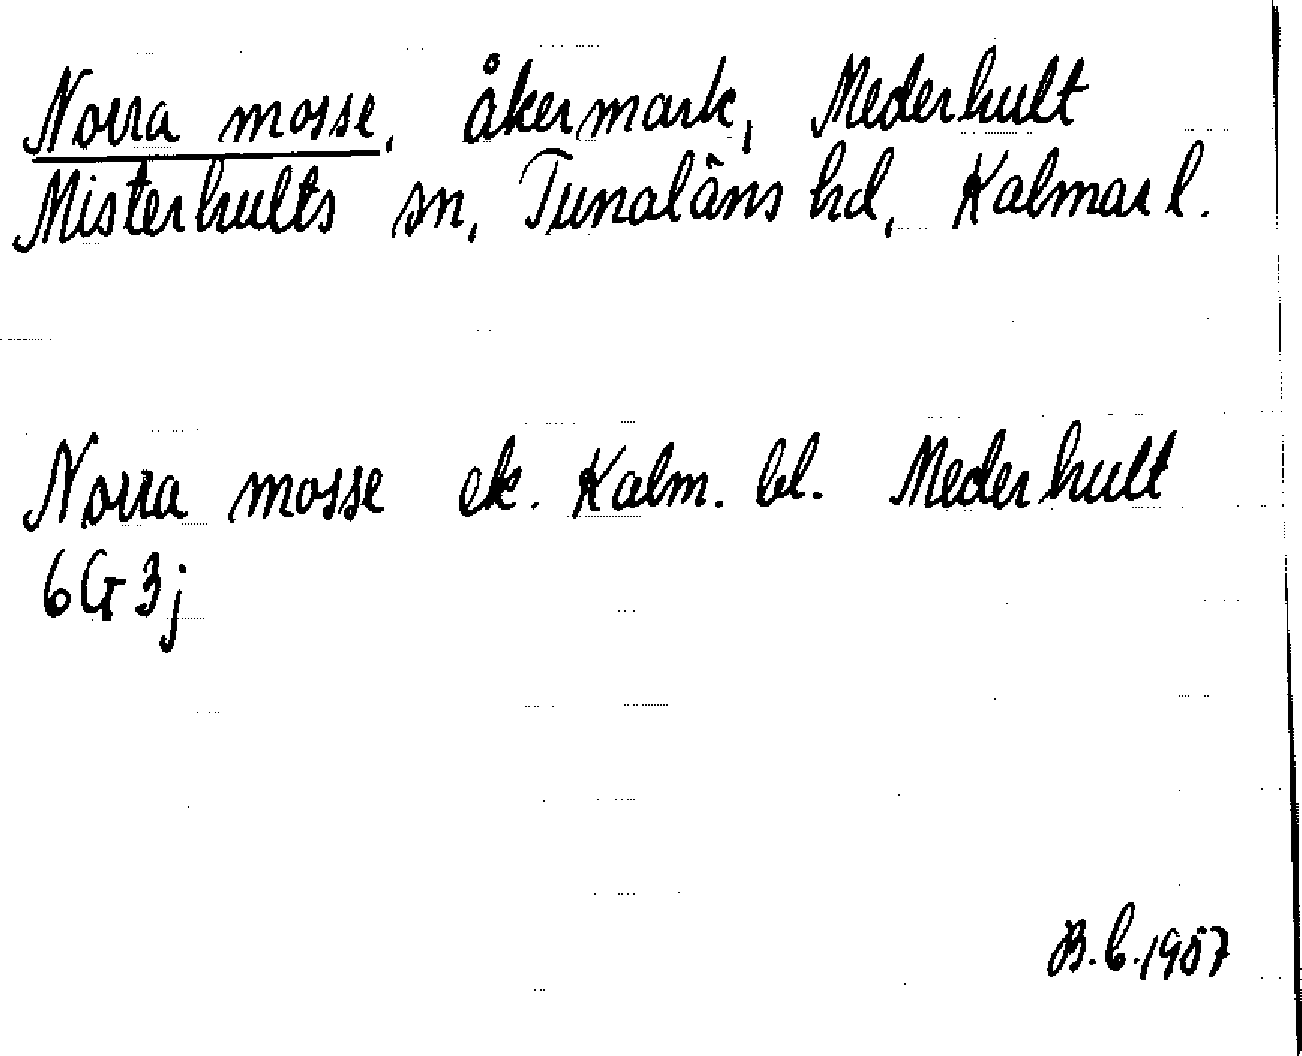 Norra mosse, åkermark, Mederhult
Misterhults sn, Tunaläns hd, Kalmar l.
Norra mosse ek. Kalm. bl. Mederhult
6G3j
B.C.1957